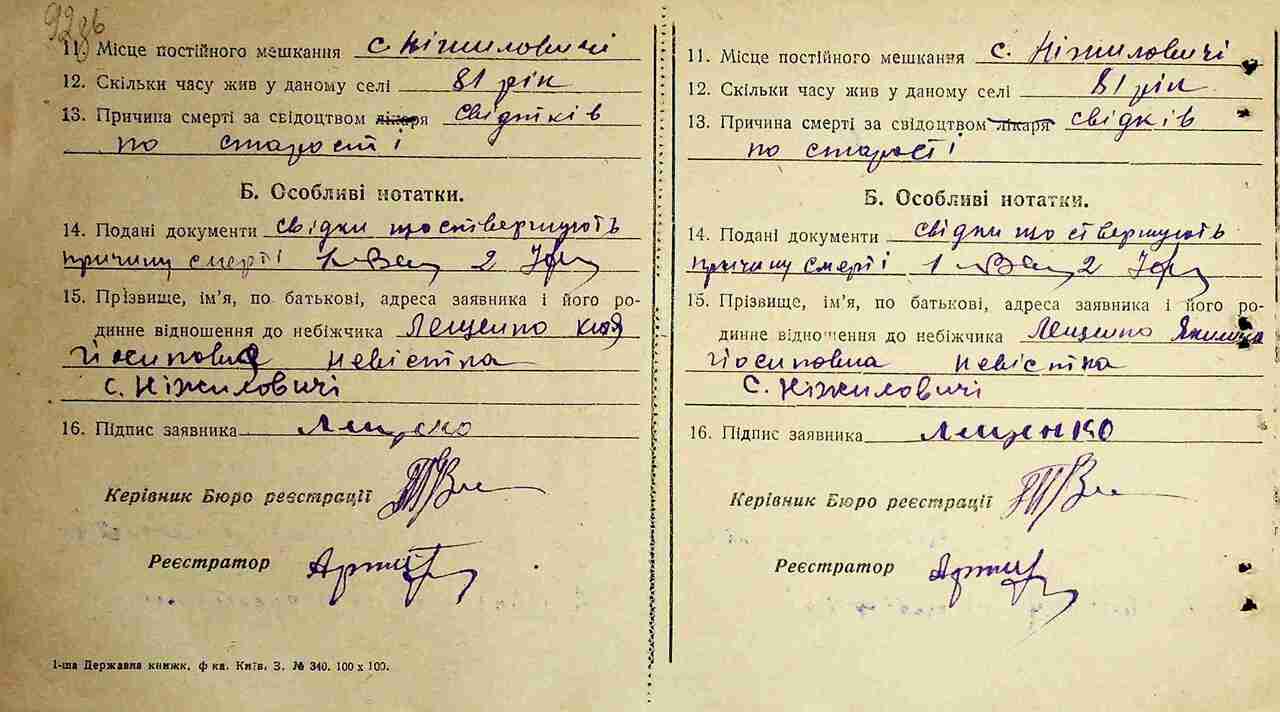 92зв
11. Місце постійного мешкання с. Ніжиловичі
12. Скільки часу жив у даному селі 81 рік
13. Причина смерті за свідоцтвом лікаря свідків
по старості
Б. Особливі нотатки.
14. Подані документи свідки що ствержують
причину смерті 1 2
15. Прізвище, ім'я, по батькові, адреса заявника і його ро-
динне відношення до небіжчика Лещенко
Йосиповна невістка
с. Ніжиловичі
16. Підпис заявника Лещенко
Керівник Бюро реєстрації
Реєстратор
1-ша Державна книжк. ф-ка. Київ. З. № 340. 100 x 100.
11. Місце постійного мешкання с. Ніжиловичі
12. Скільки часу жив у даному селі 81 рік
13. Причина смерті за свідоцтвом лікаря свідків
по старості
Б. Особливі нотатки.
14. Подані документи свідки що ствержують
причину смерті 1 2
15. Прізвище, ім'я, по батькові, адреса заявника і його ро-
динне відношення до небіжчика Лещенко
Йосиповна невістка
С. Ніжиловичі
16. Підпис заявника Лещенко
Керівник Бюро реєстрації
Реєстратор